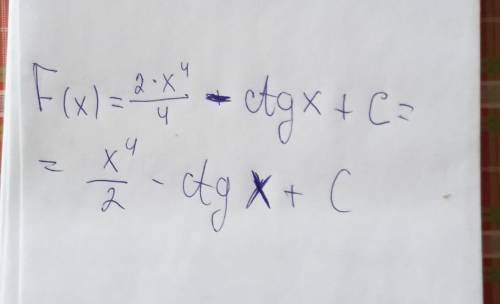 F(x) = \frac{2 \cdot x^4}{4} - ctgx + C =
= \frac{x^4}{2} - ctgx + C